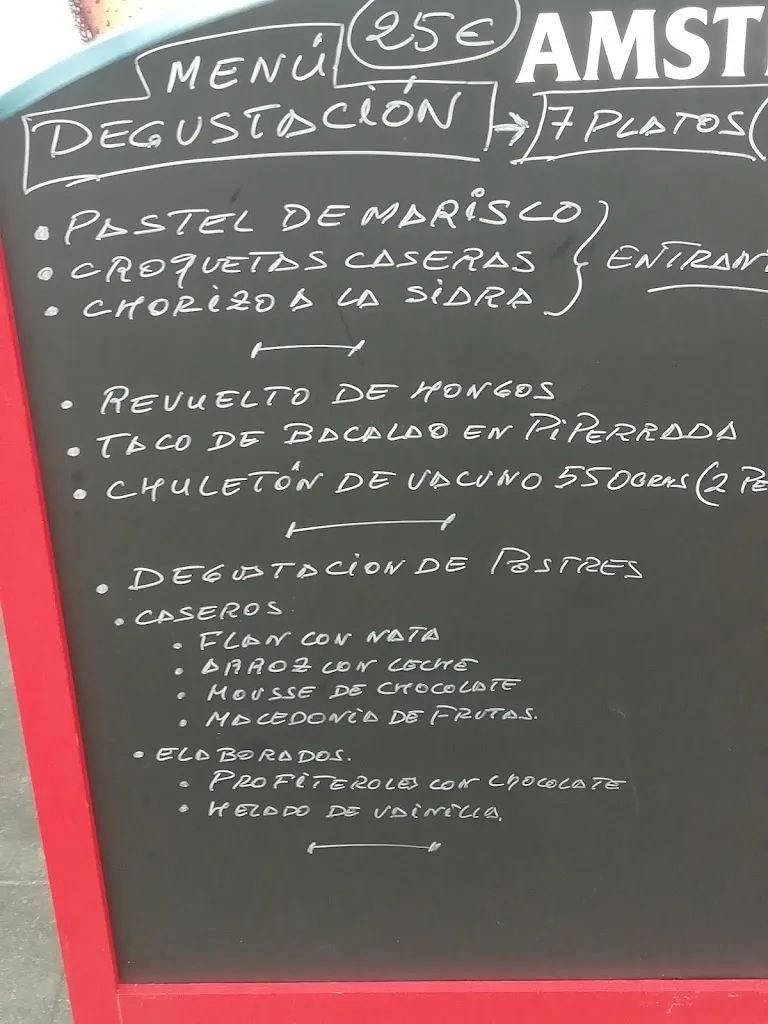 25€
AMST
MENÚ
DEGUSTACIÓN → 7 PLATOS (
• PASTEL DE MARISCO
• CROQUETAS CASERAS } ENTRAN
• CHORIZO A LA SIDRA
• REVUELTO DE HONGOS
• TACO DE BACALAO EN PIPERRADA
• CHULETÓN DE VACUNO 550GRMS (2 PE
• DEGUSTACION DE POSTRES
• CASEROS
• FLAN CON NATA
• ARROZ CON LECHE
• MOUSSE DE CHOCOLATE
• MACEDONIA DE FRUTAS.
• ELABORADOS.
• PROFITEROLES CON CHOCOLATE
• HELADO DE VAINILLA.